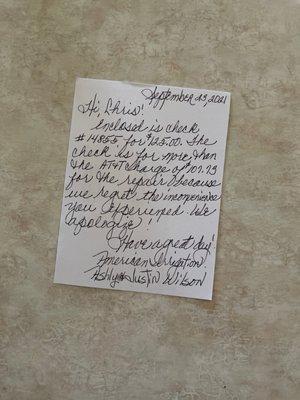 September 23, 2021
Hi, Chris!
Enclosed is check
#14855 for $125.00. The
check is for more than
the AT&T charge of 107.73
for the repair because
we regret the inconvenience
you experienced. We
apologize!
Have a great day!
American Irrigation
Ashly & Justin Wilson